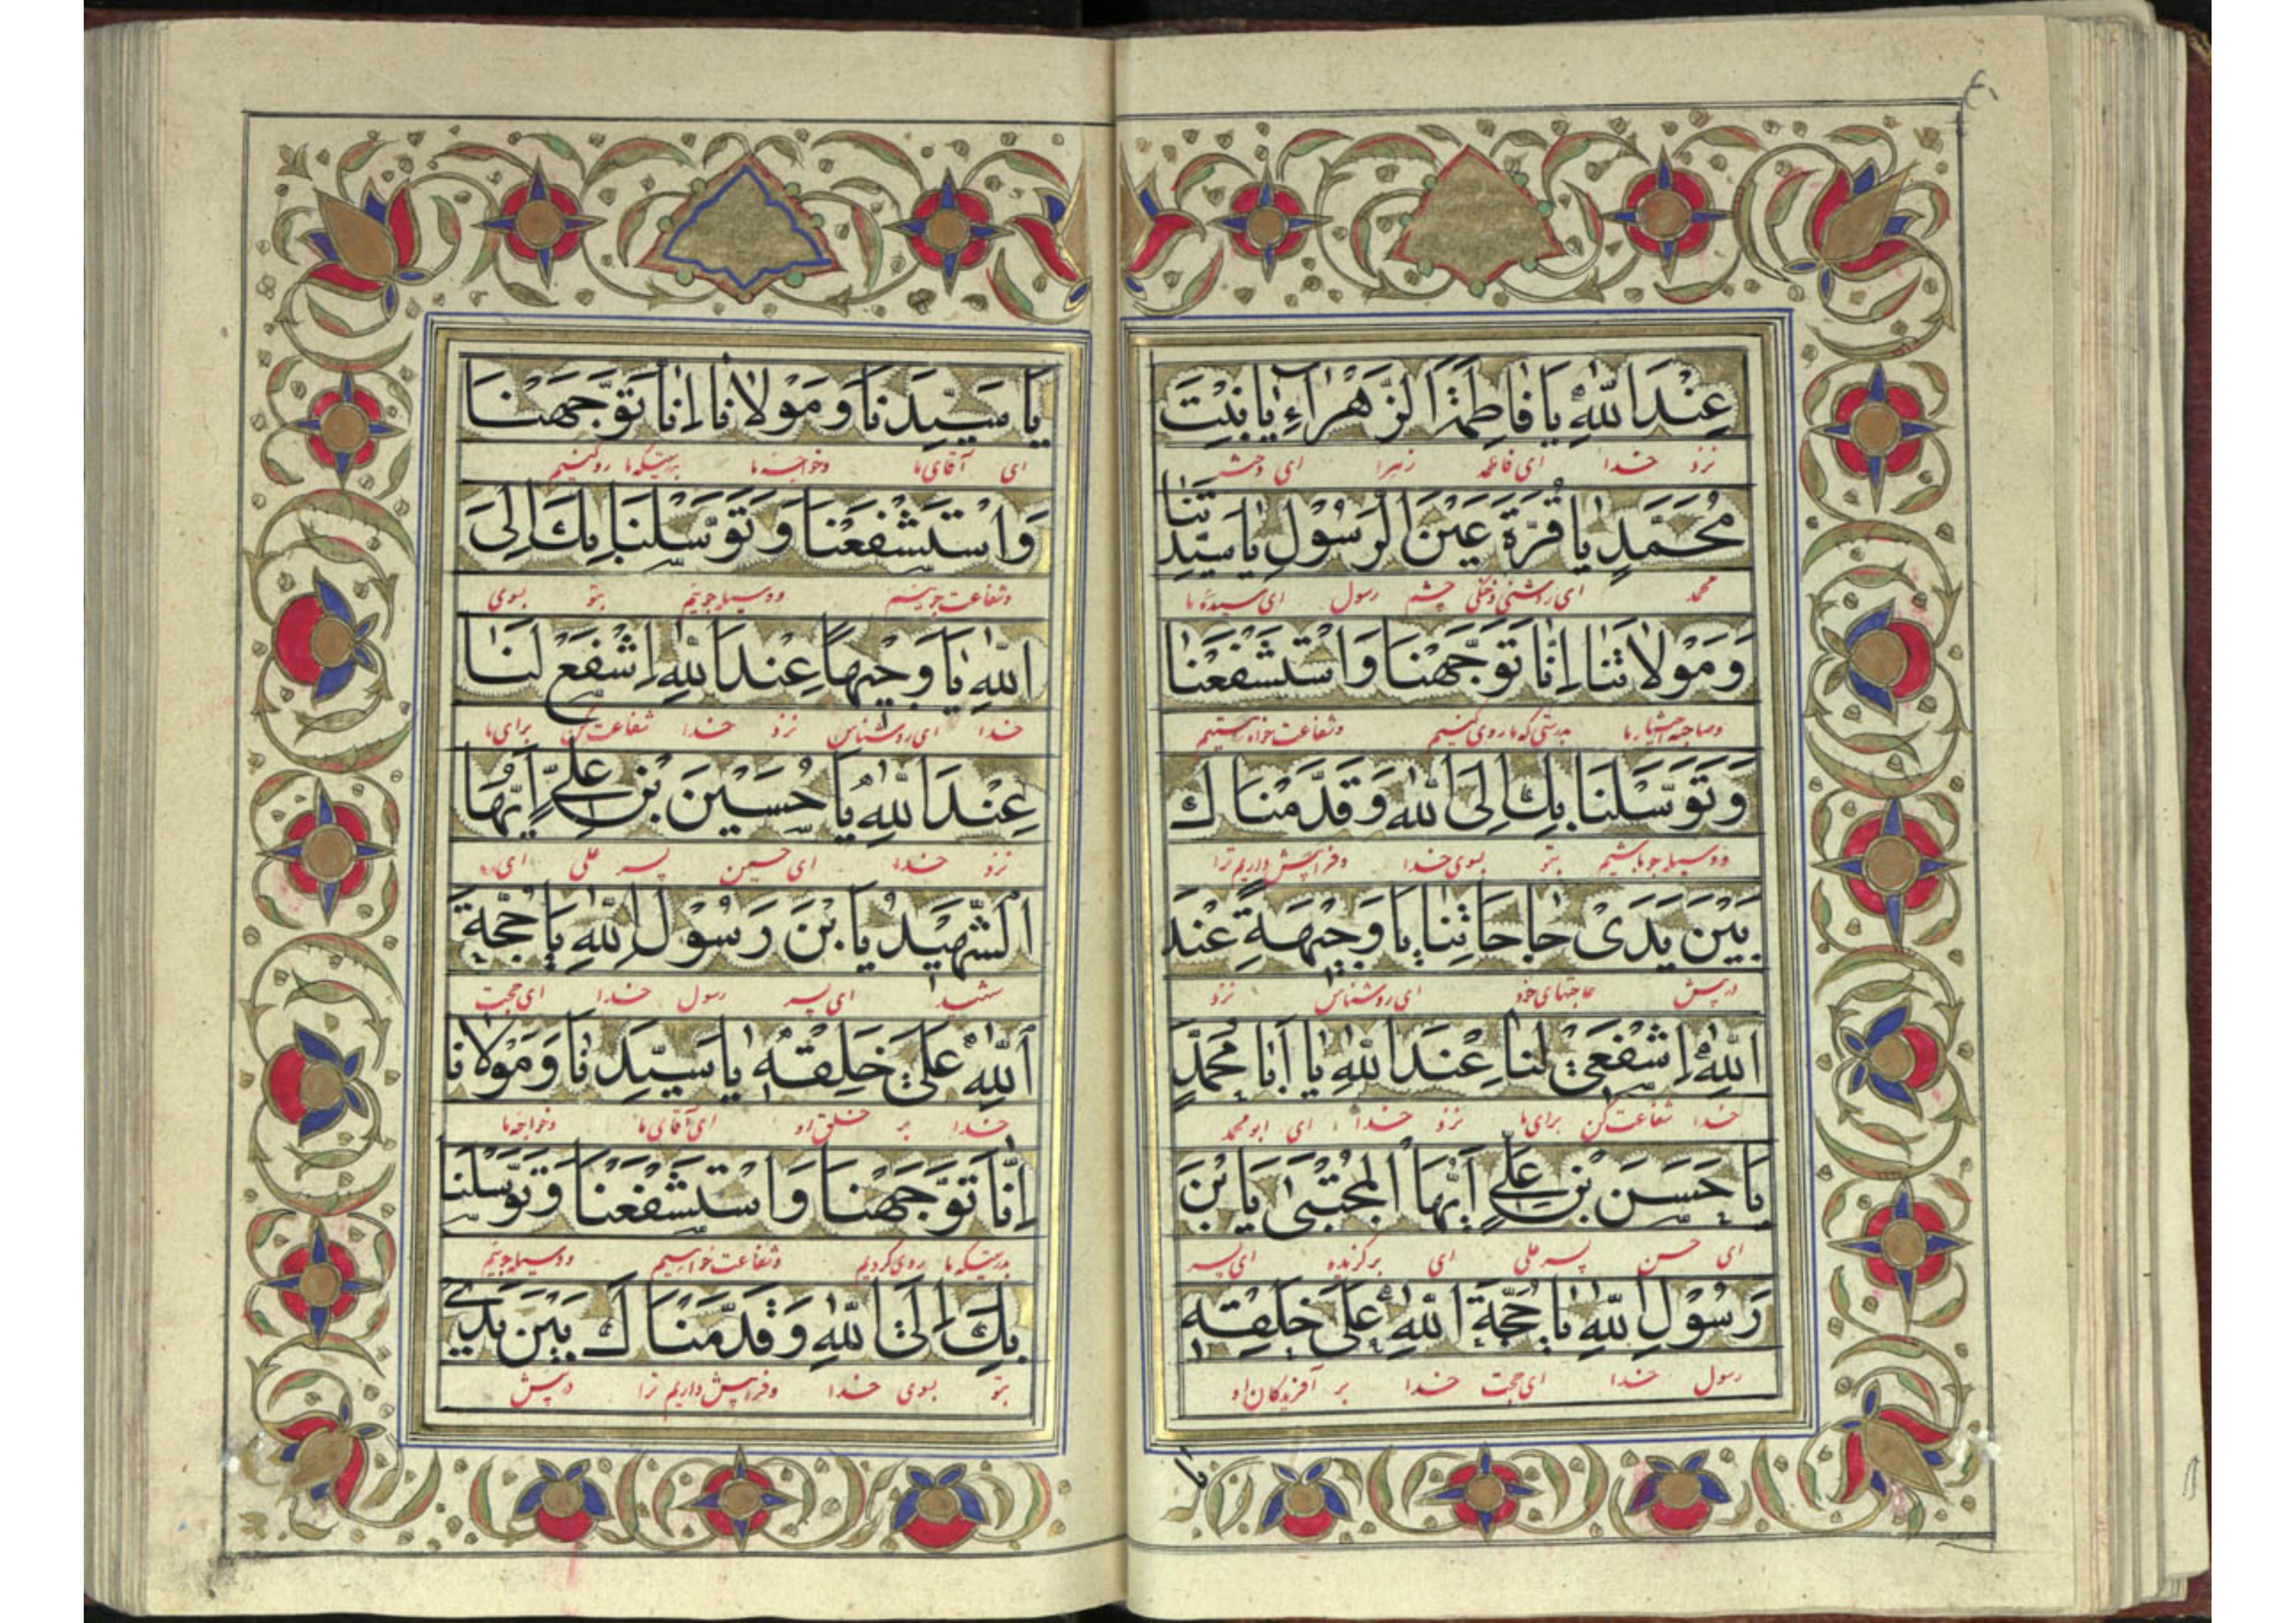 عِنْدَ اللّٰهِ يَا فَاطِمَةُ الزَّهْرَاءِ يَا بِنْتَ
نزد خدا ای فاطمه زهرا ای دختر
مُحَمَّدٍ يَا قُرَّةَ عَيْنِ الرَّسُوْلِ يَا سَيِّدَتَنَا
محمد ای روشنی و خنکی چشم رسول ای سیده ما
وَمَوْلَاتَنَا اِنَّا تَوَجَّهْنَا وَاسْتَشْفَعْنَا
وصاحبه اختیار ما بدرستی که ما روی کنیم وشفاعت خواستیم
وَتَوَسَّلْنَا بِكِ اِلَى اللّٰهِ وَقَدَّمْنَاكِ
و وسیله جو باشیم بتو بسوی خدا وفراپیش داریم ترا
بَيْنَ يَدَىْ حَاجَاتِنَا يَا وَجِيْهَةً عِنْدَ
در پیش حاجتهای خود ای روشناس نزد
اللّٰهِ اِشْفَعِىْ لَنَا عِنْدَ اللّٰهِ يَا اَبَا مُحَمَّدٍ
خدا شفاعت کن برای ما نزد خدا ای ابو محمد
يَا حَسَنَ بْنَ عَلِيٍّ اَيُّهَا الْمُجْتَبٰى يَا بْنَ
ای حسن پسر علی ای برگزیده ای پسر
رَسُوْلِ اللّٰهِ يَا حُجَّةَ اللّٰهِ عَلٰى خَلْقِهِ
رسول خدا ای حجت خدا بر آفریدگان او
يَا
يَا سَيِّدَنَا وَمَوْلَانَا اِنَّا تَوَجَّهْنَا
ای آقای ما وخواجه ما بدرستیکه ما رو کنیم
وَاسْتَشْفَعْنَا وَتَوَسَّلْنَا بِكَ اِلَى
وشفاعت جوییم و وسیله جوییم بتو بسوی
اللّٰهِ يَا وَجِيْهًا عِنْدَ اللّٰهِ اِشْفَعْ لَنَا
خدا ای روشناس نزد خدا شفاعت کن برای ما
عِنْدَ اللّٰهِ يَا حُسَيْنَ بْنَ عَلِيٍّ اَيُّهَا
نزد خدا ای حسین پسر علی ای
الشَّهِيْدُ يَا بْنَ رَسُوْلِ اللّٰهِ يَا حُجَّةَ
شهید ای پسر رسول خدا ای حجت
اللّٰهِ عَلٰى خَلْقِهِ يَا سَيِّدَنَا وَمَوْلَانَا
خدا بر خلق او ای آقای ما وخواجه ما
اِنَّا تَوَجَّهْنَا وَاسْتَشْفَعْنَا وَتَوَسَّلْنَا
بدرستیکه ما روی کردیم وشفاعت خواهیم و وسیله جوییم
بِكَ اِلَى اللّٰهِ وَقَدَّمْنَاكَ بَيْنَ يَدَىْ
بتو بسوی خدا وفراپیش داریم ترا در پیش